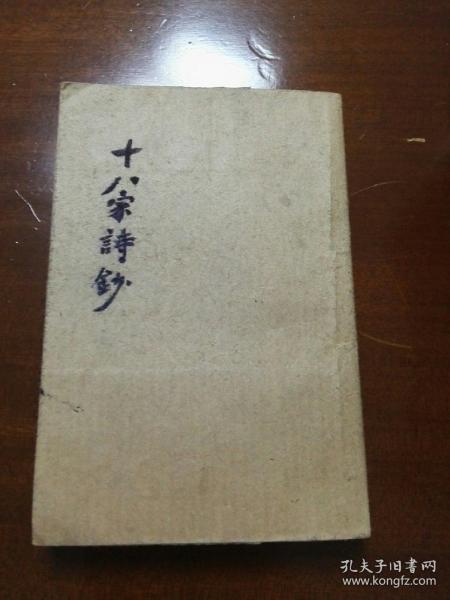 十八家詩鈔
孔夫子旧书网
www.kongfz.com